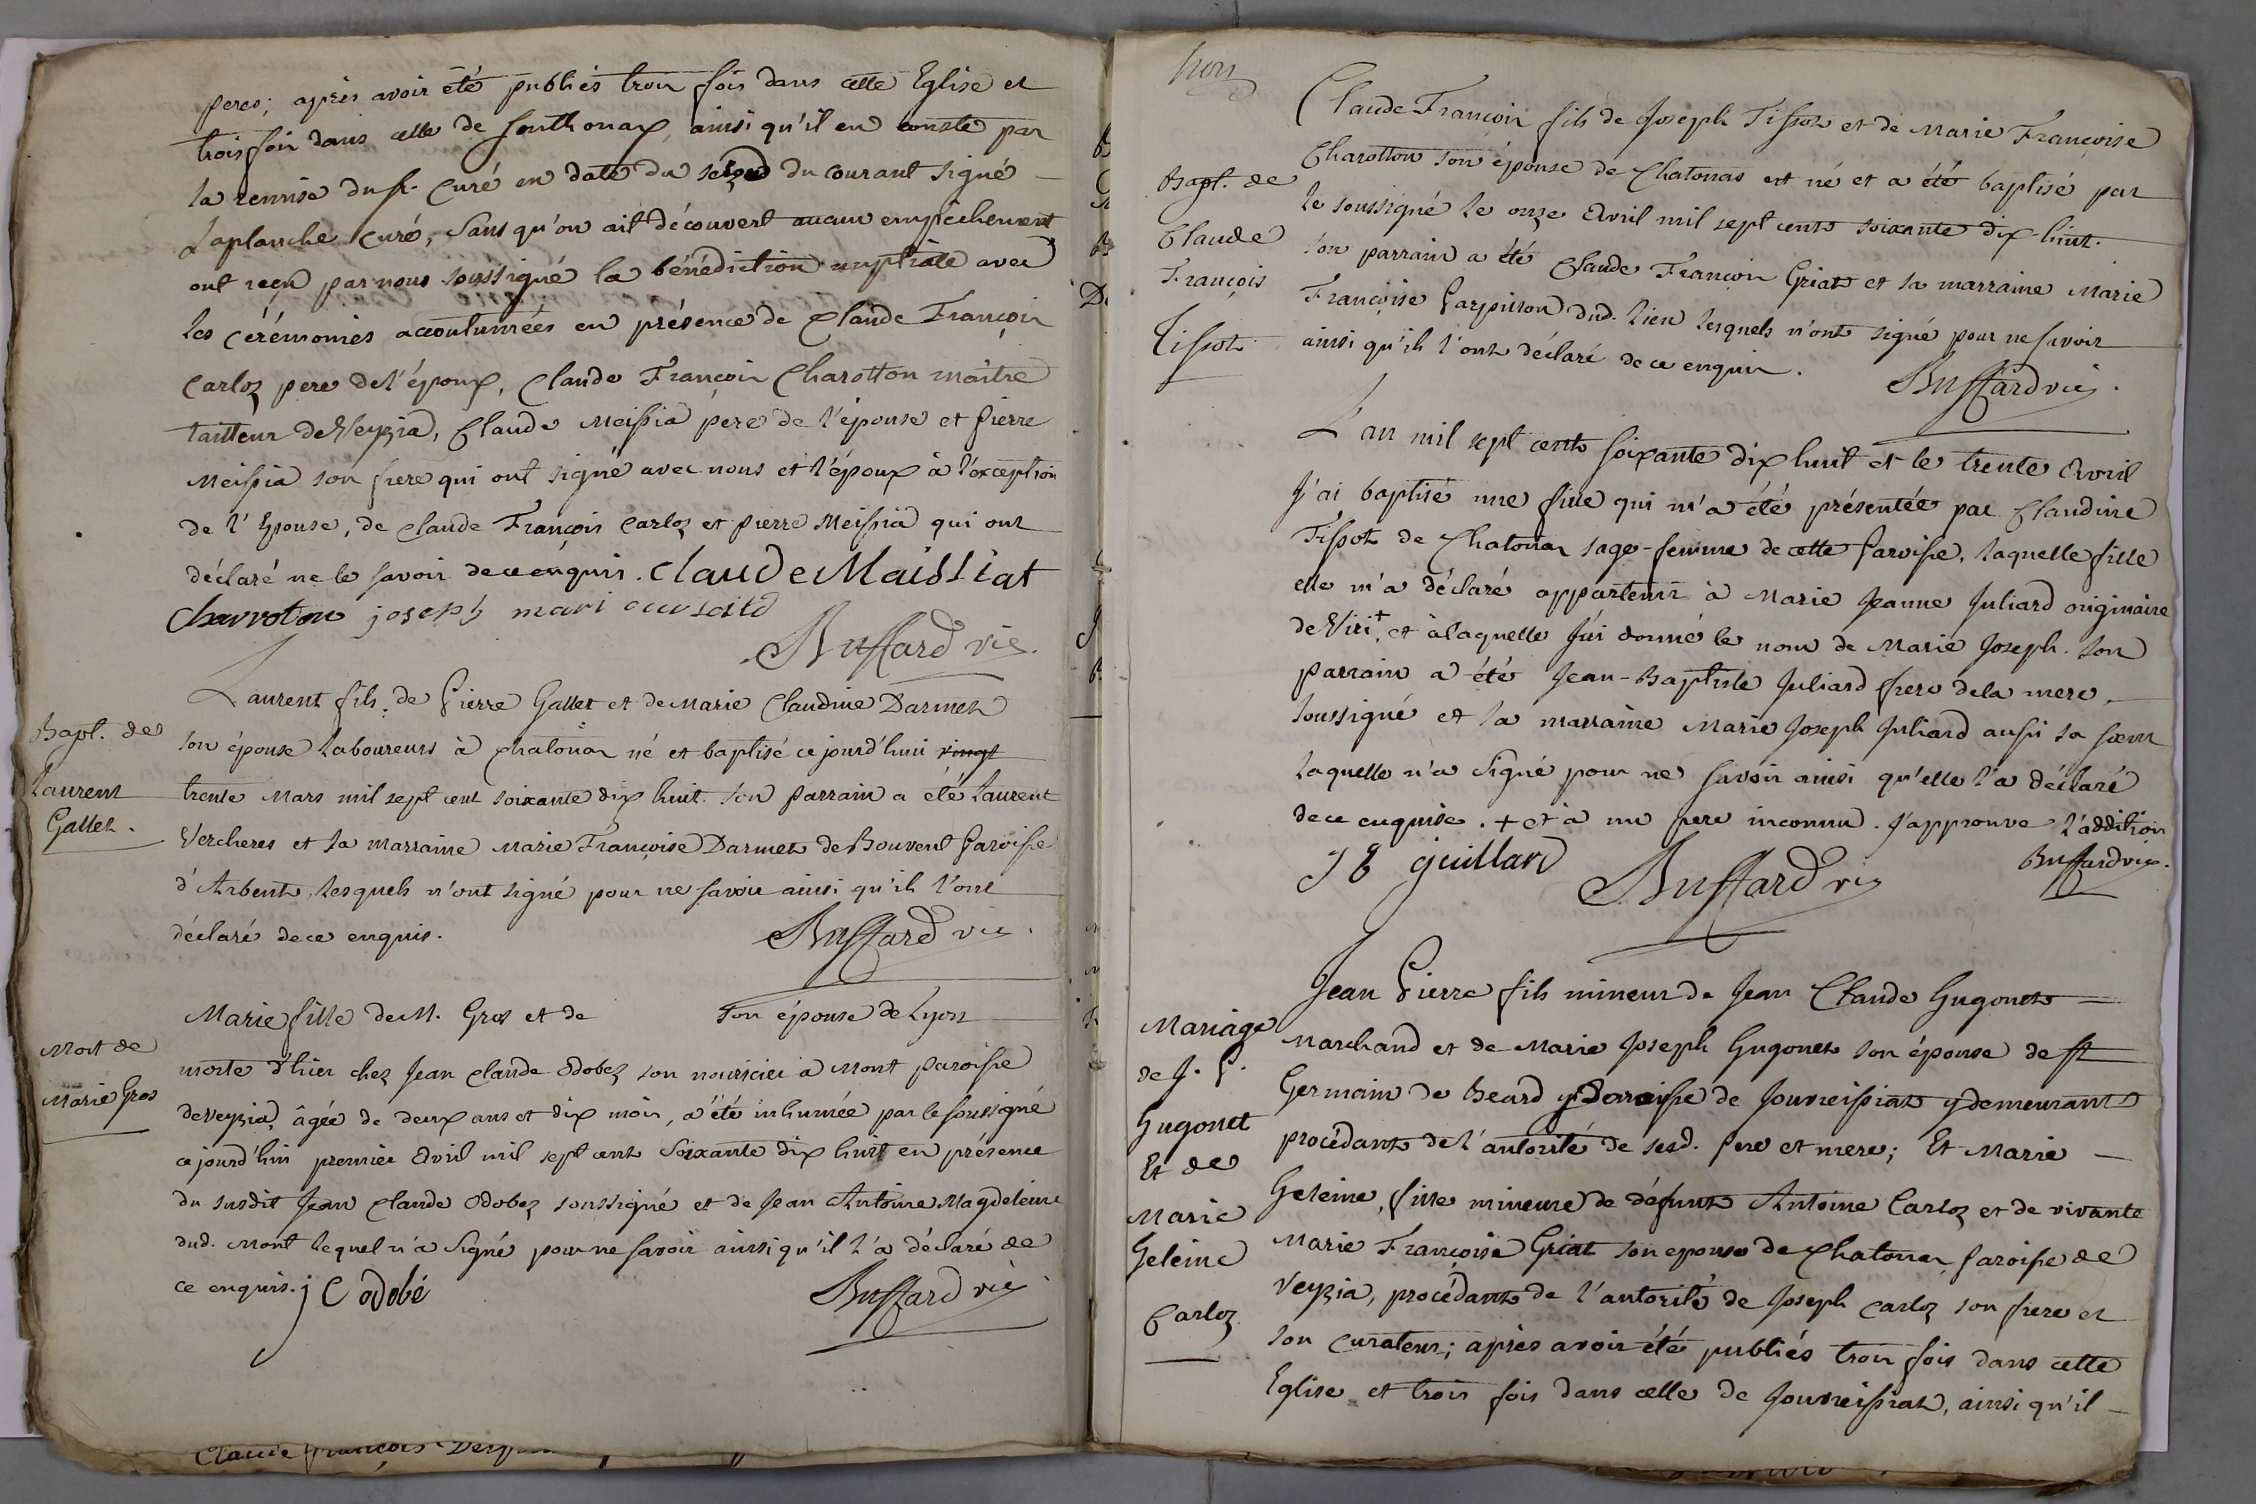 peres; après avoir été publiés trois fois dans cette Eglise et
trois fois dans celle de Sonthonax, ainsi qu'il en conste par
la remise du sr. Curé en date du du courant signé
Laplanche curé, sans qu'on ait découvert aucun empêchement
ont reçu par nous soussigné la bénédiction nuptiale avec
les cérémonies accoutumées en présence de Claude François
Carloz pere de l'époux, Claude François Charotton maître
tailleur de Veyzia, Claude Meissia pere de l'épouse et pierre
Meissia son frere qui ont signé avec nous et l'époux à l'exception
de l'Epouse, de Claude François Carloz et pierre Meissia qui ont
déclaré ne le savoir de ce enquis. Claude Maissiat
Charroton joseph mari
Buffard vic.
Laurent fils de Pierre Gallet et de Marie Claudine Darmet
Bapt. de
Laurent
Gallet.
son épouse Laboureurs à Chatonax né et baptisé ce jourd'hui vingt
trente Mars mil sept cent soixante dix huit. son parrain a été Laurent
Vercheres et la marraine Marie Françoise Darmet de Bouvent Paroisse
d'Arbent, lesquels n'ont signé pour ne savoir ainsi qu'ils l'ont
déclaré de ce enquis.
Buffard vic.
Marie fille de M. Gros et de son épouse de Lyon
Mort de
Marie Gros
morte d'hier chez Jean Claude Odobez son nourricier à Mont paroisse
de Veyzia, âgée de deux ans et dix mois, a été inhumée par le soussigné
ce jourd'hui premier Avril mil sept cent soixante dix huit en présence
du susdit Jean Claude Odobez soussigné et de Jean Antoine Magdeleine
dud. Mont lequel n'a signé pour ne savoir ainsi qu'il l'a déclaré de
ce enquis. j C odobé
Buffard vic
Claude françois
Claude François fils de Joseph Tissot et de Marie Françoise
Bapt. de
Claude
François
Tissot
Charotton son épouse de Chatonas est né et a été baptisé par
le soussigné le onze Avril mil sept cent soixante dix-huit.
son parrain a été Claude François Griat et sa marraine Marie
Françoise Carpinson dud. lieu lesquels n'ont signé pour ne savoir
ainsi qu'ils l'ont déclaré de ce enquis.
Buffard vic.
L'an mil sept cent soixante dix huit et le trente Avril
J'ai baptisé une fille qui m'a été présentée par Claudine
Tissot de Chatonax sage-femme de cette Paroisse, laquelle fille
elle m'a déclaré appartenir à Marie Jeanne Juliard originaire
de Viri+, et à laquelle j'ai donné le nom de Marie Joseph. son
parrain a été Jean-Baptiste Juliard frere de la mere
soussigné et la marraine Marie Joseph Juliard aussi sa sœur
laquelle n'a signé pour ne savoir ainsi qu'elle l'a déclaré
de ce enquise. + et à un pere inconnu. J'approuve l'addition
J B guillard
Buffard vic
Buffard vic.
Jean Pierre fils mineur de Jean Claude Gugonet
Mariage
de J. P.
Gugonet
Et de
Marie
Geleine
Carloz
Marchand et de Marie Joseph Gugonet son épouse de st
Germain de Beard paroisse de Jouveissiat y demeurant
procédant de l'autorité de sesd. pere et mere; Et Marie
Geleine, fille mineure de défunt Antoine Carloz et de vivante
Marie Françoise Griat son epouse de Chatonax Paroisse de
Veyzia, procédant de l'autorité de Joseph Carloz son frere et
son Curateur; après avoir été publiés trois fois dans cette
Eglise et trois fois dans celle de Jouveissiat, ainsi qu'il